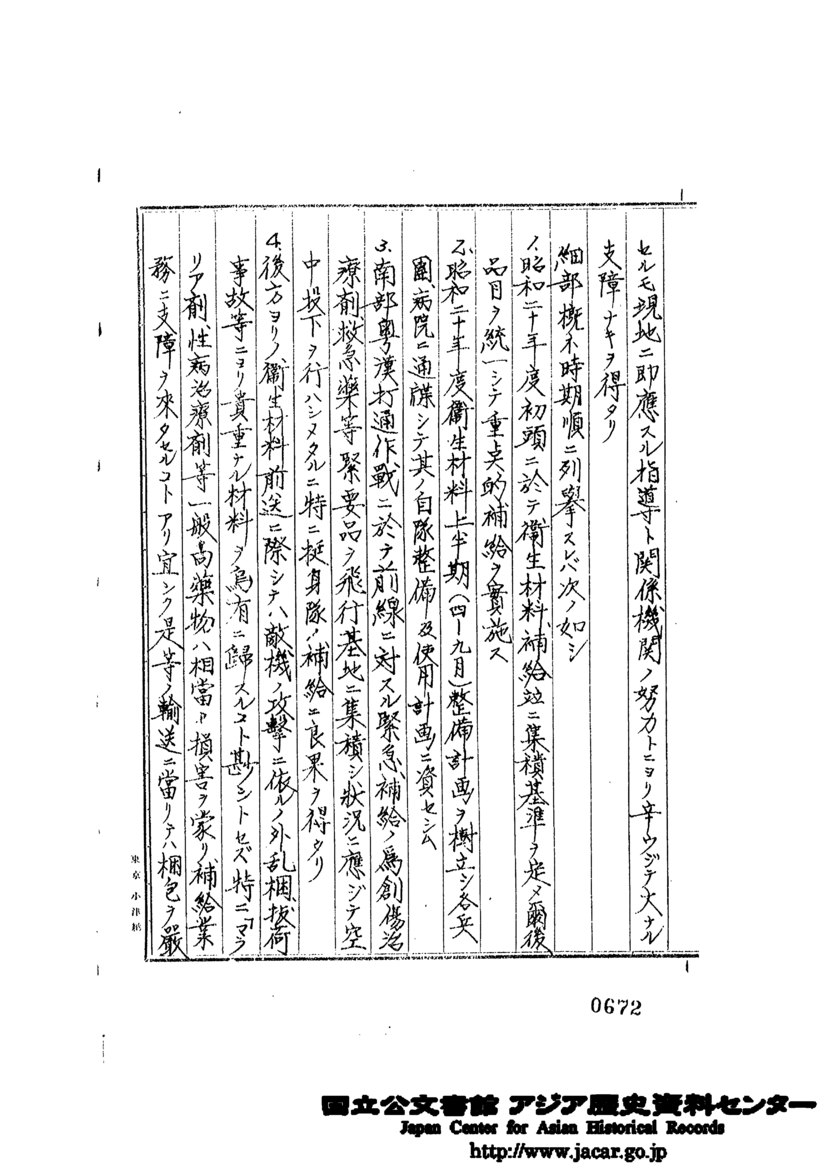 セルモ現地ニ助應スル指導ト関係機関ノ努力トニヨリ辛ウジテ大ナル
支障ナキヲ得タリ
細部概ネ時期順ニ列擧スレバ次ノ如シ
1.昭和二十年度初頭ニ於テ衛生材料補給竝ニ集積基準ヲ定メ爾後
品目ヲ統一シテ重点的補給ヲ實施ス
2.昭和二十年度衛生材料上半期(四ー九月)整備計画ヲ樹立シ各兵
團病院ニ通牒シテ其ノ自隊整備及使用計画ニ資セシム
3.南部粤漢打通作戰ニ於テ前線ニ対スル緊急補給ノ爲創傷治
療剤救急藥等緊要品ヲ飛行基地ニ集積シ狀況ニ應ジテ空
中投下ヲ行ハシメタルニ特ニ挺身隊ノ補給ニ良果ヲ得タリ
4.後方ヨリノ衛生材料前送ニ際シテハ敵機ノ攻撃ニ依ルノ外乱梱、拔荷
事故等ニヨリ貴重ナル材料ヲ烏有ニ歸スルコト尠シトセズ特ニ「マラ
リア剤性病治療剤等一般高藥物ハ相當ノ損害ヲ蒙リ補給業
務ニ支障ヲ來タセルコトアリ宜シク是等ノ輸送ニ當リテハ梱包ヲ嚴
東京 小津
0672
国立公文書館 アジア歴史資料センター
Japan Center for Asian Historical Records
http://www.jacar.go.jp